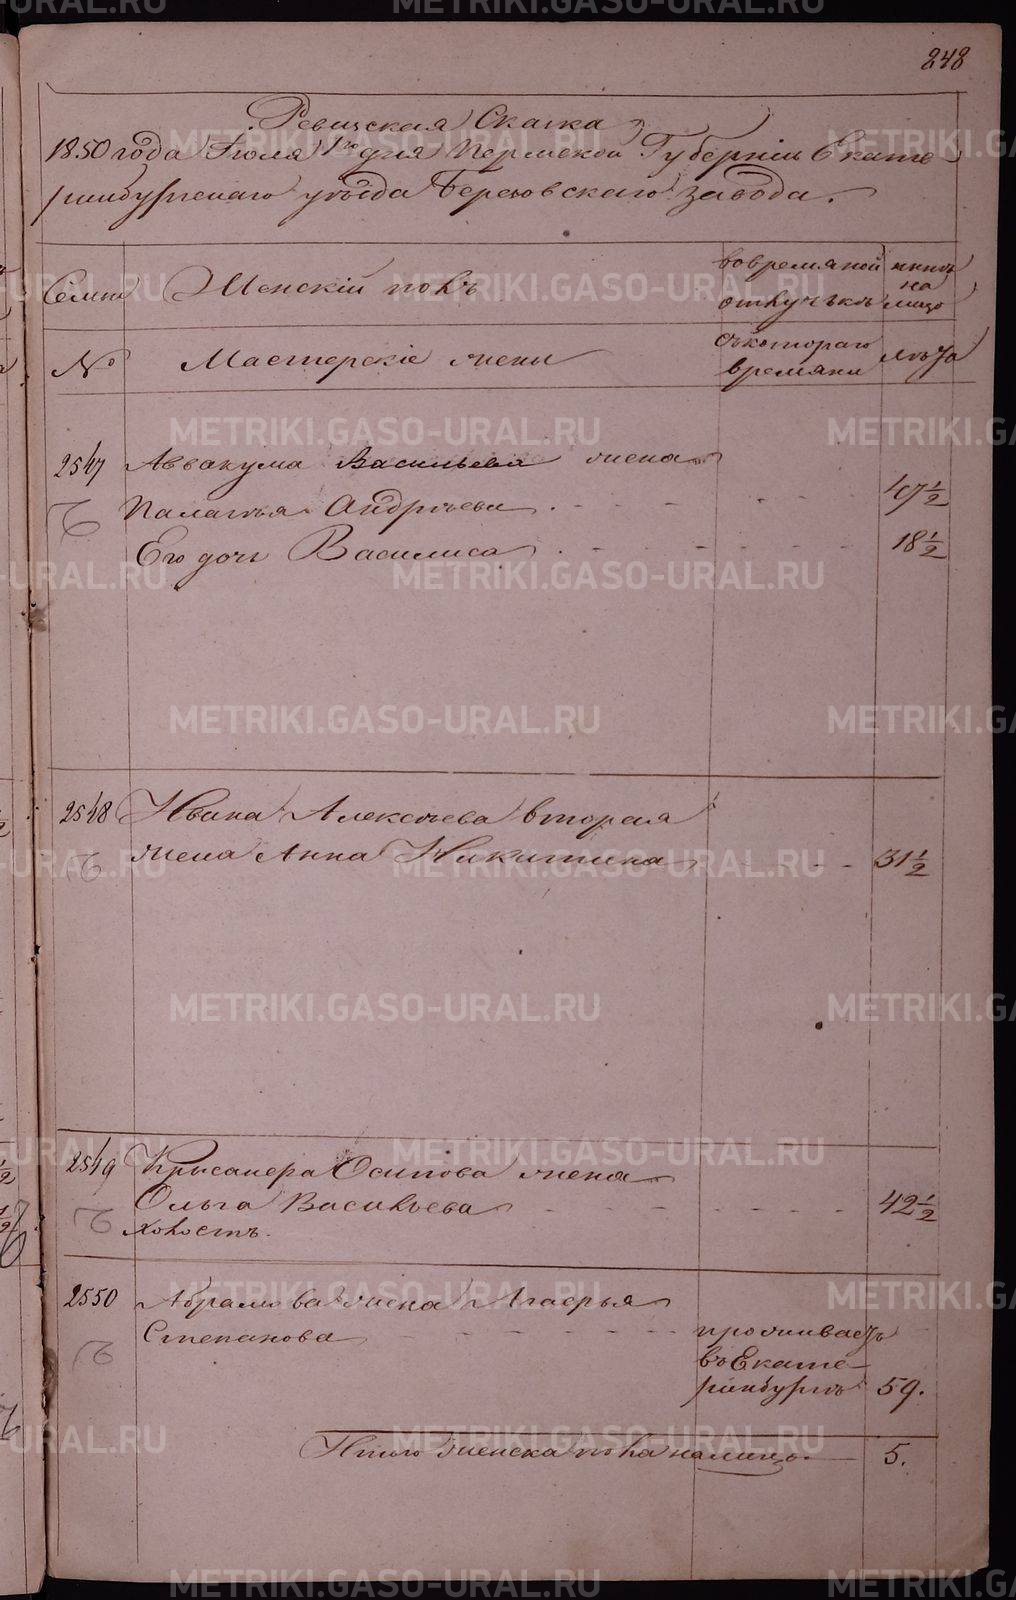 248
Ревизская Сказка
1850 года Июля 1го дня Пермской Губернiи Екате
ринбургскаго уѣзда Березовскаго завода.
Семьи Женскiй полъ вовременной отлучкѣ ныне на лицо
№ Мастерскiе жены съкотораго времяни лѣта
2547 Аввакума Васильева жена
Палагѣя Андрѣева 47 1/2
Его дочь Василиса 18 1/2
2548 Ивана Алексѣева вторая
жена Анна Никитина 31 1/2
2549 Крисанфа Осипова жена
Ольга Васильева 42 1/2
холостъ.
2550 Абрамова жена Агафья
Степанова проживаетъ
въ Екате
ринбургѣ 59.
Итого женска пола налицо 5.
METRIKI.GASO-URAL.RU